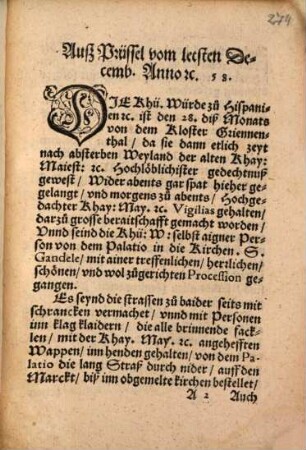 279
Auß Prüssel vom leesten De-
cemb. Anno ꝛc. 58.
DIE Khü. Würde zů Hispani-
en ꝛc. ist den 28. diß Monats
von dem Kloster Griennen-
thal / da sie dann etlich zeyt
nach absterben Weyland der alten Khay:
Maiest: ꝛc. Hochlöblichister gedechtnuß
gewest / Wider abents gar spat hieher ge-
gelangt / vnd morgens zů abents / Hochge-
dachter Khay: May. ꝛc. Vigilias gehalten /
darzů grosse beraitschafft gemacht worden /
Vnnd seind die Khü: W: selbst aigner Per-
son von dem Palatio in die Kirchen. S.
Gandele / mit ainer treffenlichen / herzlichen /
schönen / vnd wol zůgerichten Procession ge-
gangen.
Es seynd die strassen zů baider seits mit
schrancken vermacht / vnnd mit Personen
inn klag klaidern / die alle brinnende fack-
len / mit der Khay. May. ꝛc. angehefften
Wappen / inn henden gehalten / von dem Pa-
latio die lang Straß durch nider / auff den
Marckt / biß inn obgemelte kirchen bestellet /
A 2 Auch